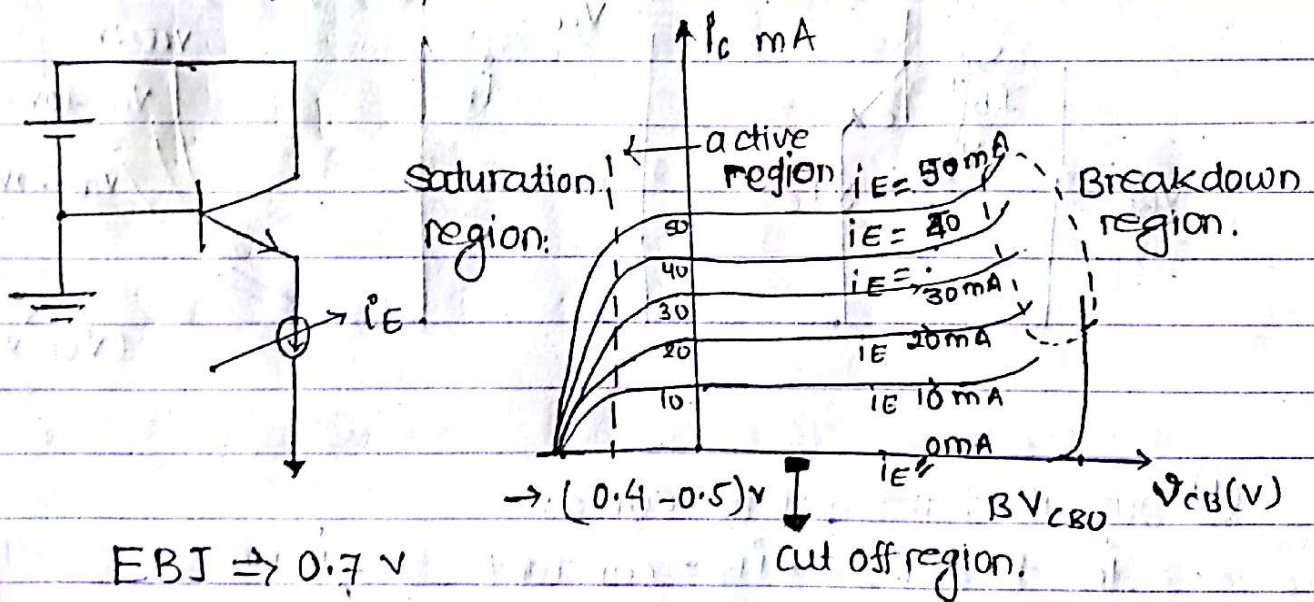 ic mA
active
region
saturation
region:
Breakdown
region.
iE= 50mA
iE= 40
iE= 30mA
iE 20mA
iE 10mA
iE= 0mA
50
40
30
20
10
iE
→ (0.4-0.5)v
BVCBO
VCB(V)
cut off region.
EBJ ⇒ 0.7 v